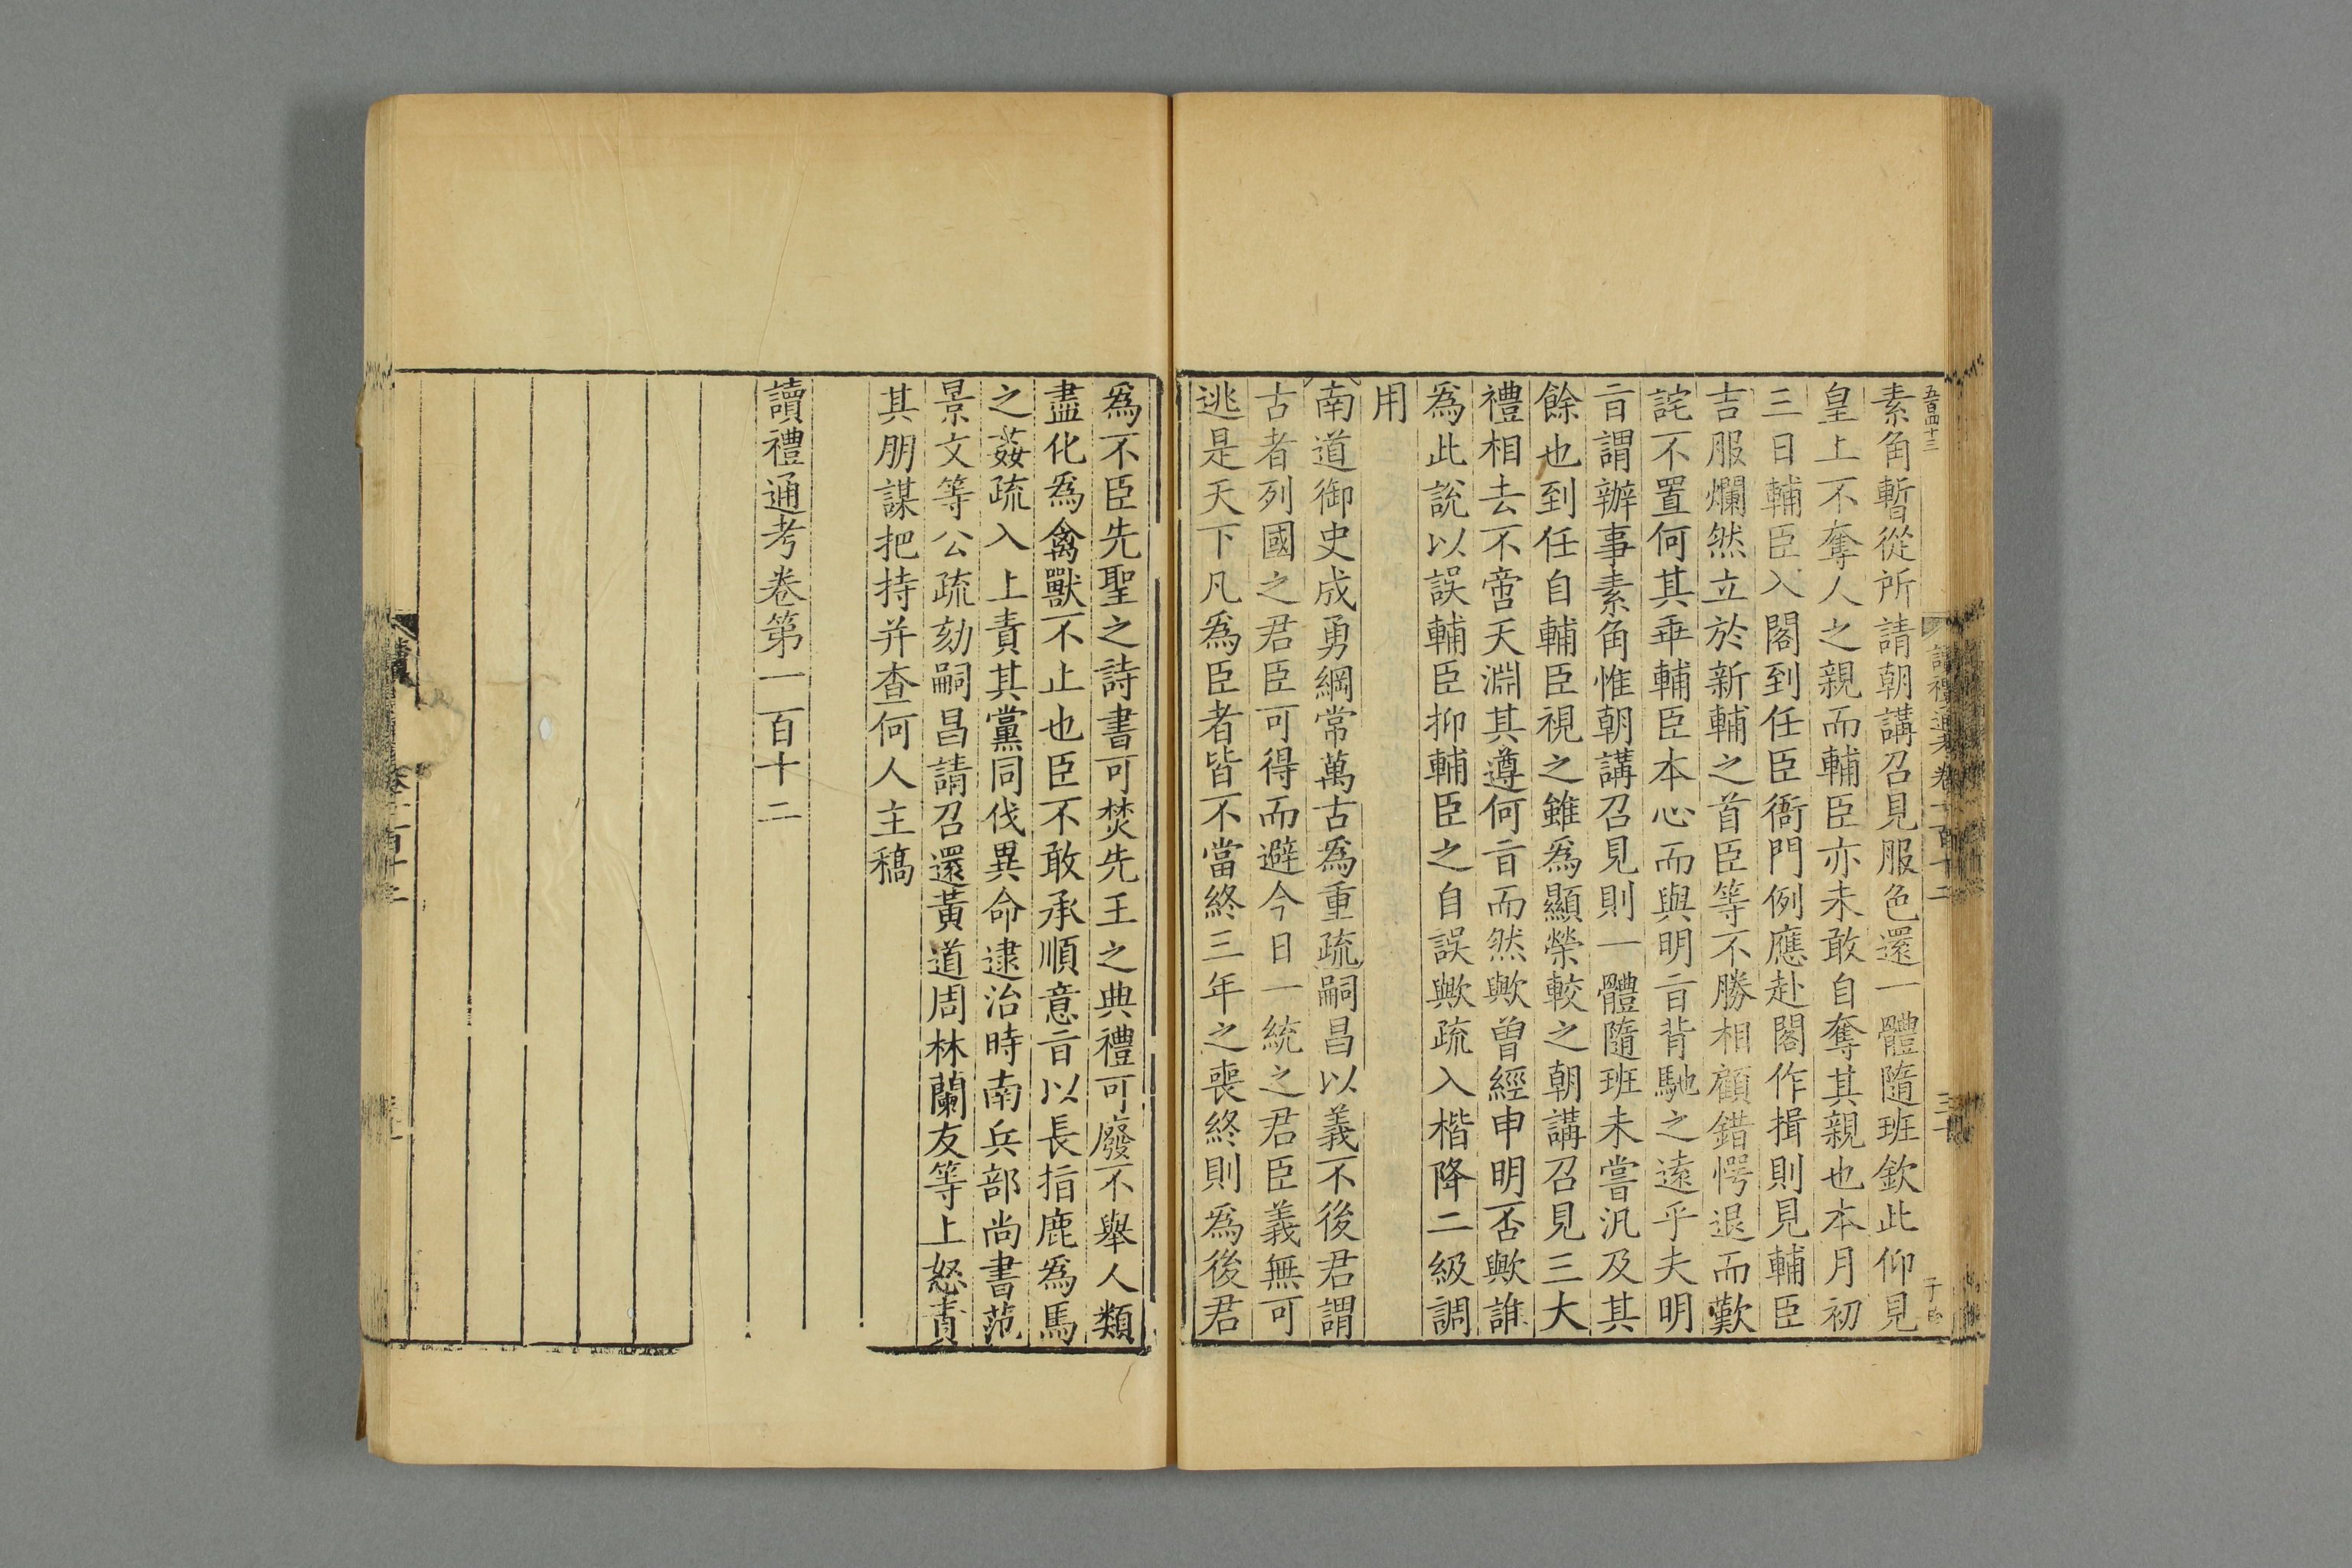 五百四十三
素角暫從所請朝講召見服色還一體隨班欽此仰見
皇上不奪人之親而輔臣亦未敢自奪其親也本月初
三日輔臣入閣到任臣衙門例應赴閣作揖則見輔臣
吉服爛然立於新輔之首臣等不勝相顧錯愕退而歎
詫不置何其乖輔臣本心而與明㫖背馳之逺乎夫明
㫖謂辦事素角惟朝講召見則一體隨班未嘗汎及其
餘也到任自輔臣視之雖爲顯榮較之朝講召見三大
禮相去不啻天淵其遵何㫖而然歟曾經申明否歟誰
爲此説以誤輔臣抑輔臣之自誤歟疏入楷降二級調
用
南道御史成勇綱常萬古爲重疏嗣昌以義不後君謂
古者列國之君臣可得而避今日一統之君臣義無可
逃是天下凡爲臣者皆不當終三年之喪終則爲後君
讀禮通考卷一百十二
三十
爲不臣先聖之詩書可焚先王之典禮可廢不舉人類
盡化爲禽獸不止也臣不敢承順意㫖以長指鹿爲馬
之姦疏入上責其黨同伐異命逮治時南兵部尚書范
景文等公疏劾嗣昌請召還黃道周林蘭友等上怒責
其朋謀把持并查何人主稿
讀禮通考卷第一百十二